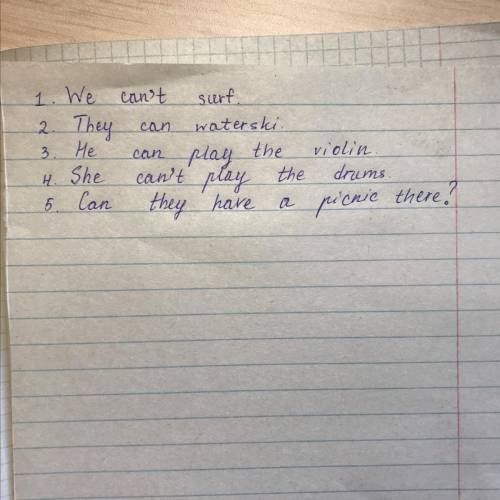 1. We can't surf.
2. They can waterski.
3. He can play the violin.
4. She can't play the drums.
5. Can they have a picnic there?